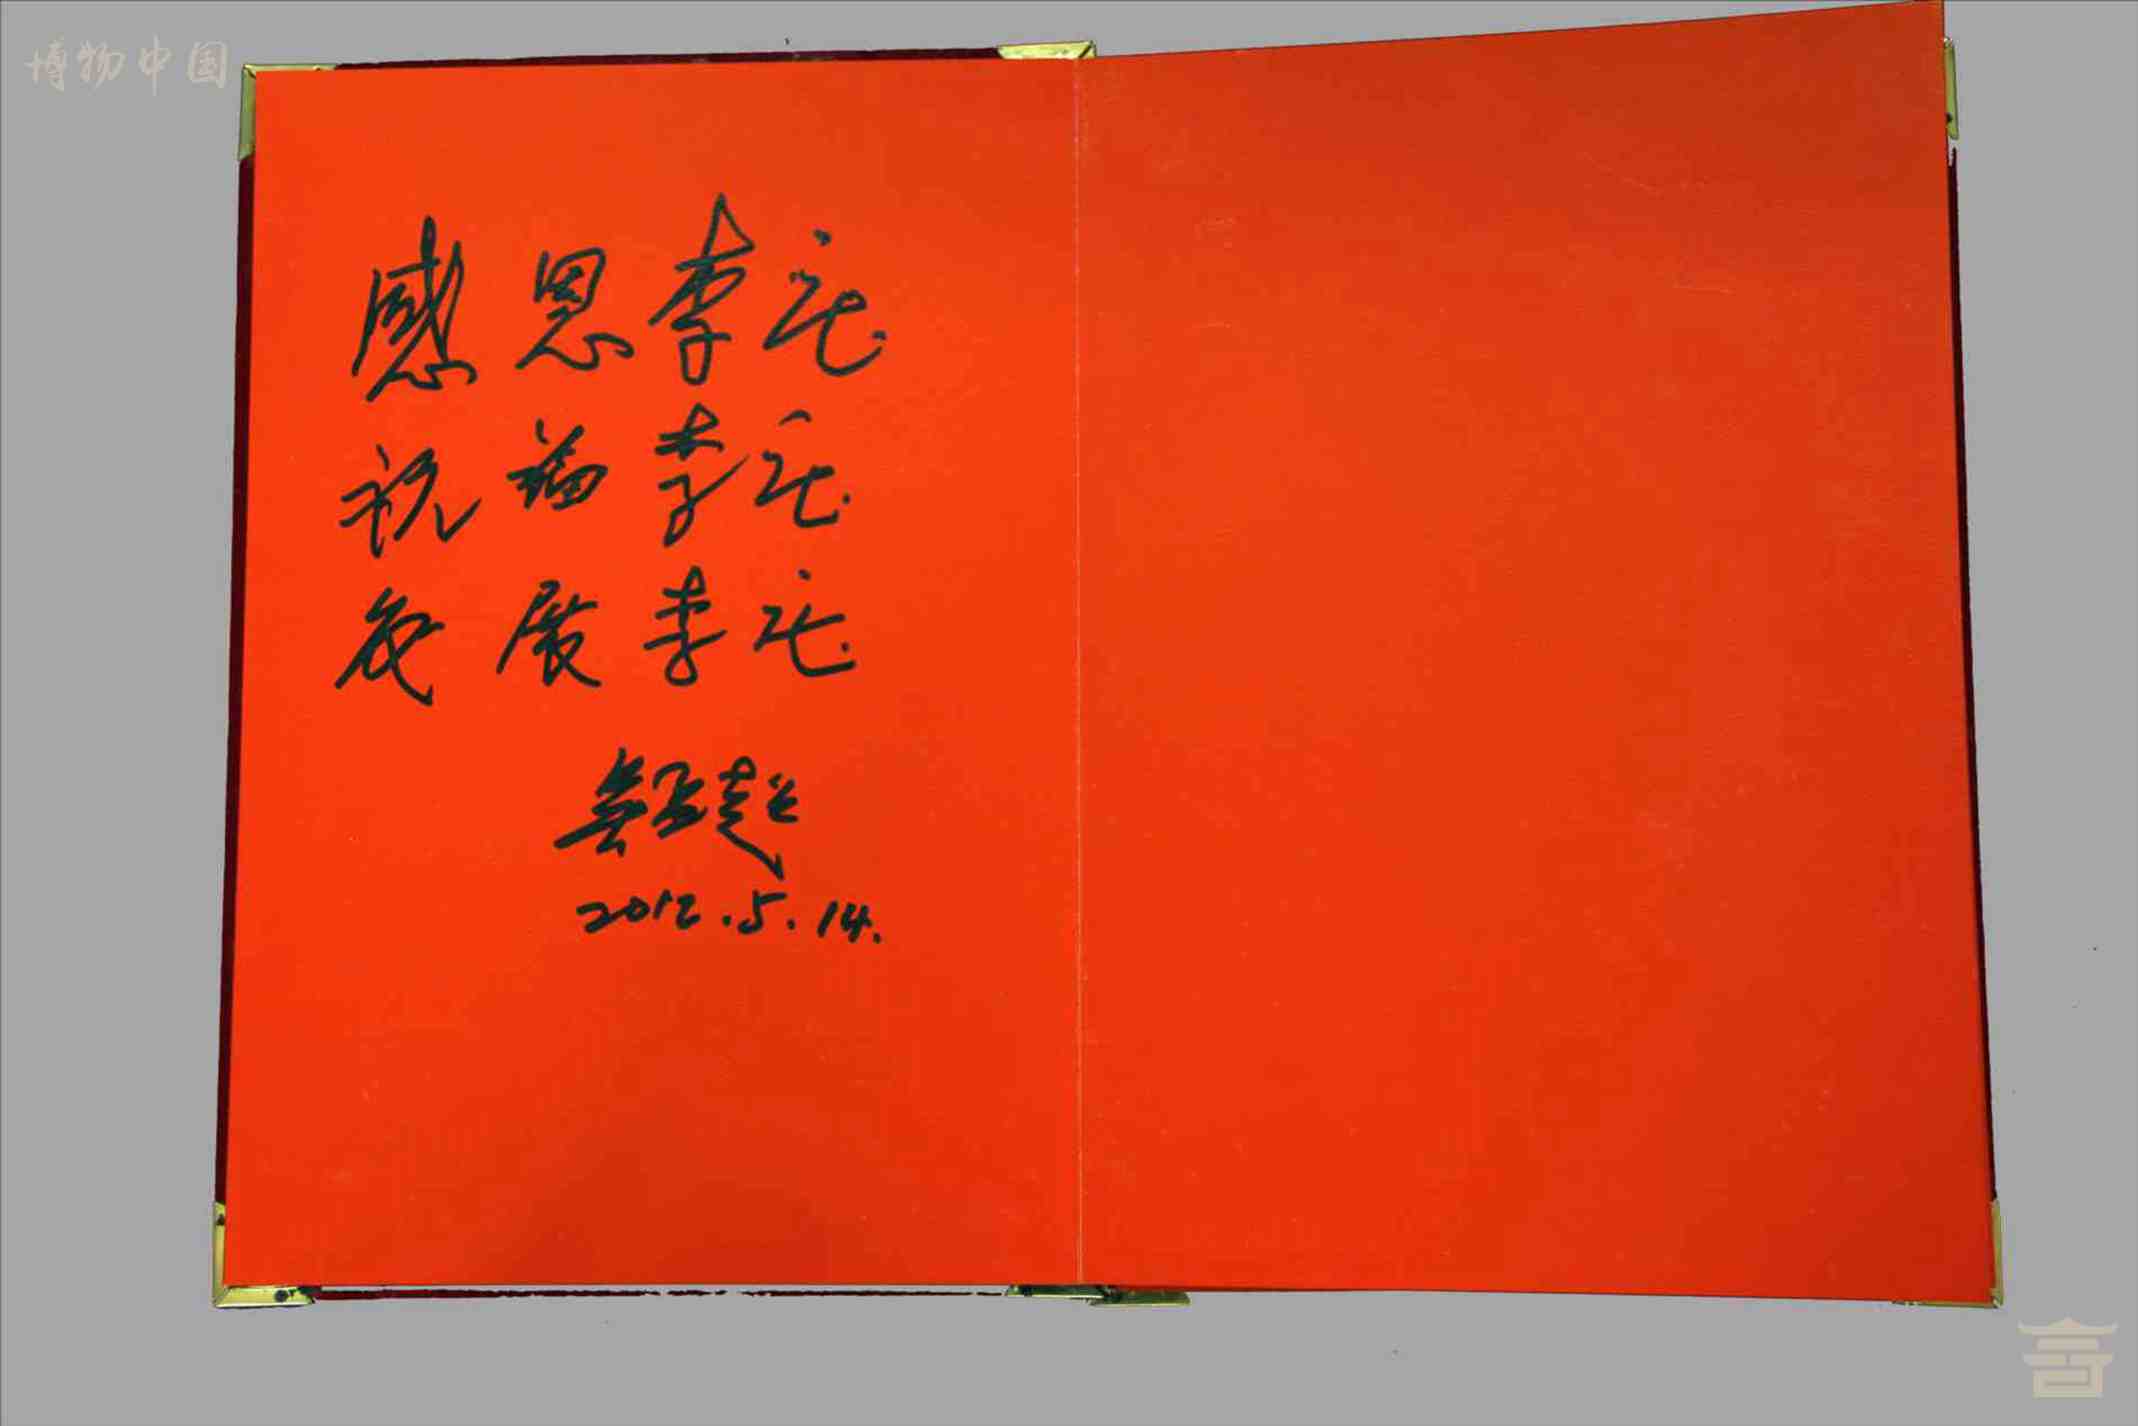 博物中国
感恩李庄
祝福李庄
发展李庄
2012.5.14.